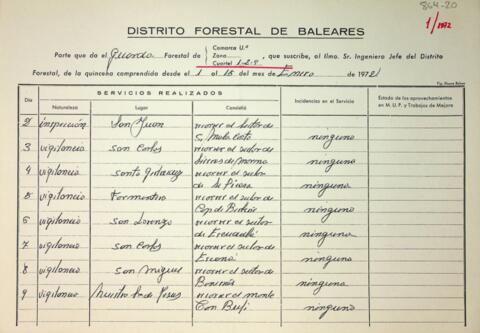 864-20
1/1972
DISTRITO FORESTAL DE BALEARES
Comarca U.ª
Parte que da el Guarda Forestal de Zona que suscribe, al Ilmo. Sr. Ingeniero Jefe del Distrito
Cuartel 1-2-9
Forestal, de la quincena comprendida desde el 1 al 15 del mes de Enero de 1972
SERVICIOS REALIZADOS
Día Naturaleza Lugar Cometido Incidencias en el Servicio Estado de los aprovechamientos en M. U. P. y Trabajos de Mejora
2 inspección San Juan recorrer el sector de
S. ninguno
3 vigilancia San Carlos recorrer el sector de
ninguna
4 vigilancia Santa recorrer el sector
de ninguna
5 vigilancia Formentera recorrer el sector de
Cap de ninguna
6 vigilancia San Lorenzo recorrer el sector
de ninguna
7 vigilancia San Carlos recorrer el sector de
ninguna
8 vigilancia San Miguel recorrer el sector de
ninguna
9 vigilancia recorrer el monte
Can ninguno